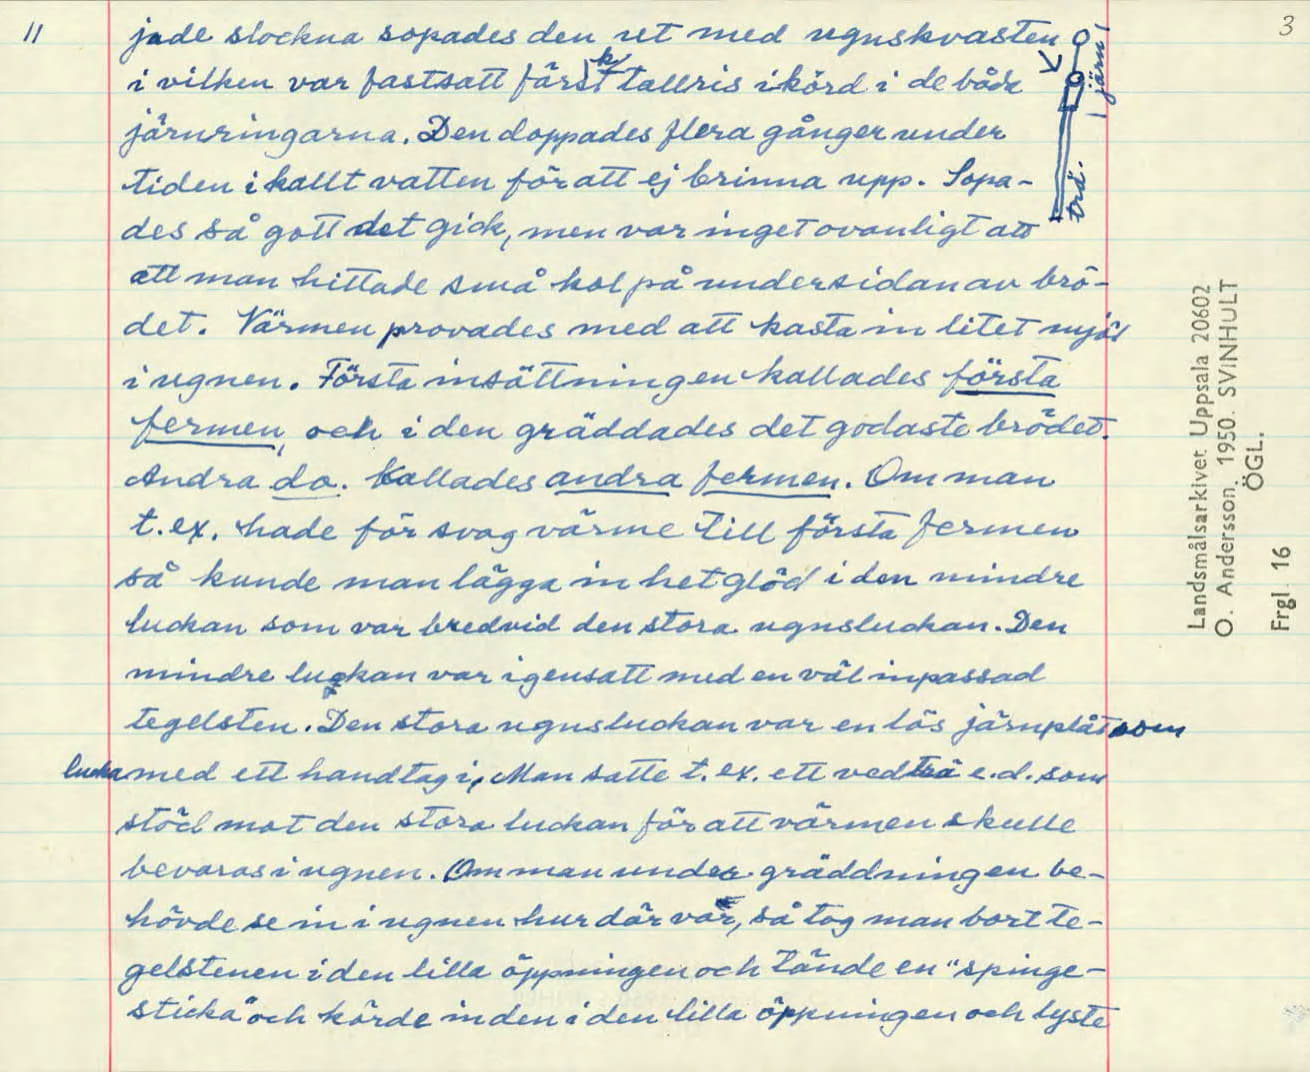 11
3
jade slockna sopades den ut med ugnskvasten
i vilken var fastsatt färskt tallris ikörd i de båda
järnringarna. Den doppades flera gånger under
tiden i kallt vatten för att ej brinna upp. Sopa-
des så gott det gick, men var inget ovanligt att
att man hittade små kol på undersidan av brö-
det. Värmen provades med att kasta in litet mjöl
i ugnen. Första insättningen kallades första
fermen, och i den gräddades det godaste brödet.
Andra do. kallades andra fermen. Om man
t.ex. hade för svag värme till första fermen
så kunde man lägga in het glöd i den mindre
luckan som var bredvid den stora ugnsluckan. Den
mindre luckan var igensatt med en väl inpassad
tegelsten. Den stora ugnsluckan var en lös järnplåt som
lucka med ett handtag i, Man satte t.ex. ett vedträ e.d. som
stöd mot den stora luckan för att värmen skulle
bevaras i ugnen. Om man under gräddningen be-
hövde se in i ugnen hur där var, så tog man bort te-
gelstenen i den lilla öppningen och tände en "spinge-
sticka" och körde in den i den lilla öppningen och lyste
järn
trä.
Landsmålsarkivet Uppsala 20602
O. Andersson. 1950. SVINHULT
ÖGL.
Frgl 16